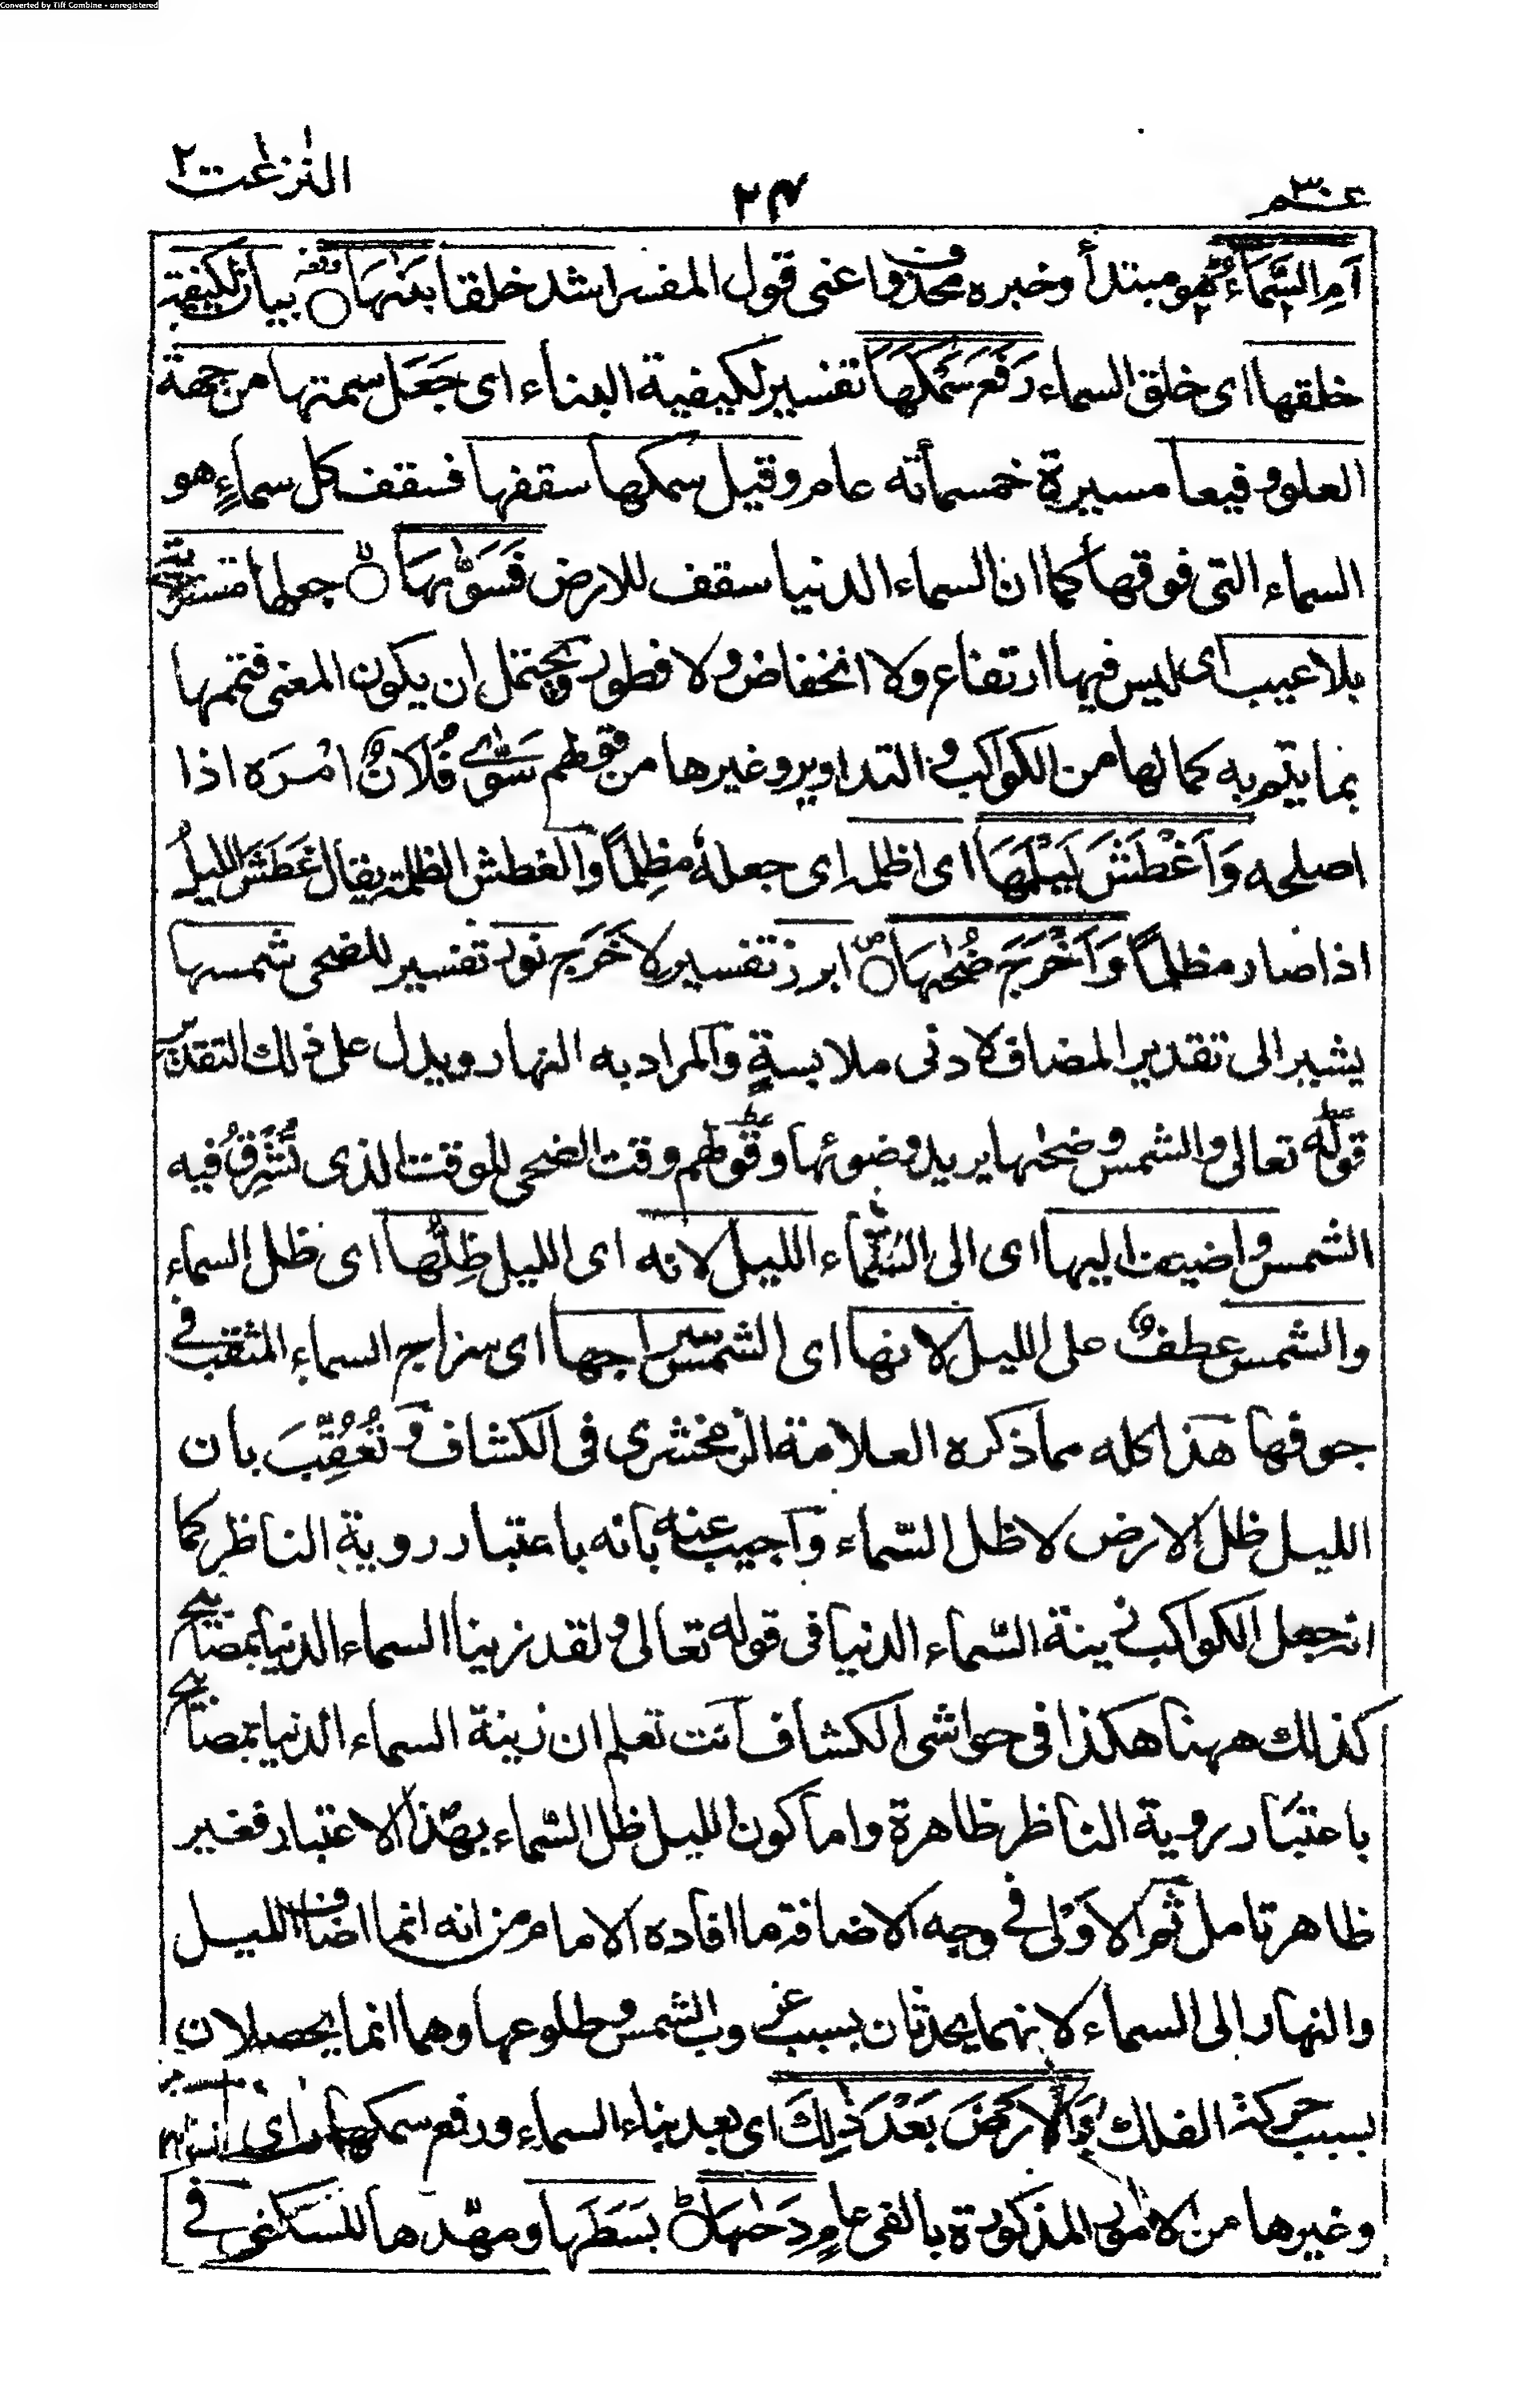 Converted by Tiff Combine - unregistered
عم ٣٠
٢٤
النزعت ٢
اَمِ السَّمَآءُ هو مبتدأ وخبره محذوف اعنى قول المفسر اشد خلقا بَنٰىهَا وقفه بيان لكيفية
خلقها اى خلق السماء رَفَعَ سَمْكَهَا تفسير لكيفية البناء اى جَعَلَ سمتها من جهة
العلو رفيعا مسيرة خمسمأته عام وقيل سمكها سقفها فسقف كل سماءٍ هو
السماء التى فوقها كما ان السماء الدنيا سقف للارض فَسَوّٰىهَا لا جعلها مستوية
بلا عيب اى ليس فيها ارتفاع ولا انخفاض ولا فطور ويحتمل ان يكون المعنى فتممها
بما يتم به كمالها من الكواكب والتداوير وغيرها من قولهم سَوّٰى فُلَانٌ امْرَه اذا
اصلحه وَاَغْطَشَ لَيْلَهَا اى اظلم اى جعلهٗ مظِلمًا والغطش الظلمة يقال غَطَشَ الليلُ
اذا صار مظلمًا وَاَخْرَجَ ضُحٰىهَا ص ابرز تفسير لاَخْرَج نور تفسير للضحى شمسها
يشير الى تقدير المضاف لادنى ملابسةٍ والمراد به النهار ويدل على ذلك التقدير
قولُه تعالى والشمس وضحٰىها يريد وضوئها وقولهم وقت الضحى للوقت الذى تُشْرِقُ فيه
الشمس واضيفت اليها اى الى السَّمَاء الليل لانه اى الليل ظِلُّها اى ظل السماء
والشمس عطفٌ على الليل لانها اى الشمس سراجها اى سراج السماء المثقب فى
جوفها هذا كله مما ذكره العلامة الزمخشرى فى الكشاف وتُعُقِّبَ بان
الليل ظل الارض لا ظل السّماء واجيب عنه بانه باعتبار روية الناظر كما
انه جعل الكواكب زينة السّماء الدنيا فى قوله تعالى ولقد زينا السماء الدنيا بمصابيح
كذلك ههنا هكذا فى حواشى الكشاف انت تعلم ان زينة السماء الدنيا بمصابيح
باعتبار روية الناظر ظاهرة واما كون الليل ظل السّماء بهذا الاعتبار فغير
ظاهر تامل ثم الاَوْلى فى وجه الاضافة ما افاده الامام من انه انما اضاف الليل
والنهار الى السماء لانهما يحدثان بسبب غروب الشمس وطلوعها وهما انما يحصلان
بسبب حركة الفلك وَالْاَرْضَ بَعْدَ ذٰلِكَ اى بعد بناء السماء ورفع سمكها اى
وغيرها من الامور المذكورة بالفى عامٍ دَحٰىهَا ط بَسَطَها ومهّدها للسكنى فى